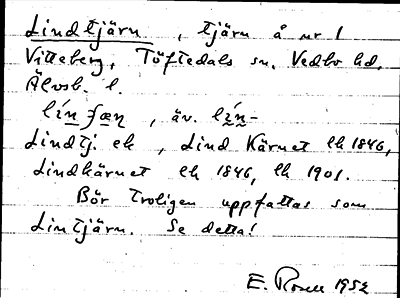 Lindtjärn, tjärn å nr 1
Vitteberg, Töftedals sn. Vedbo hd.
Älvsb. l.
lín ʃæn, äv. lín-
Lindtj. ek, Lind Kärnet lk 1846,
Lindkärnet ek 1846, lk 1901.
Bör troligen uppfattas som
Lintjärn. Se detta!
E. Rosell 1952